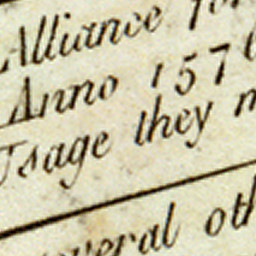 Alliance for
Anno 157
Usage they
several oth